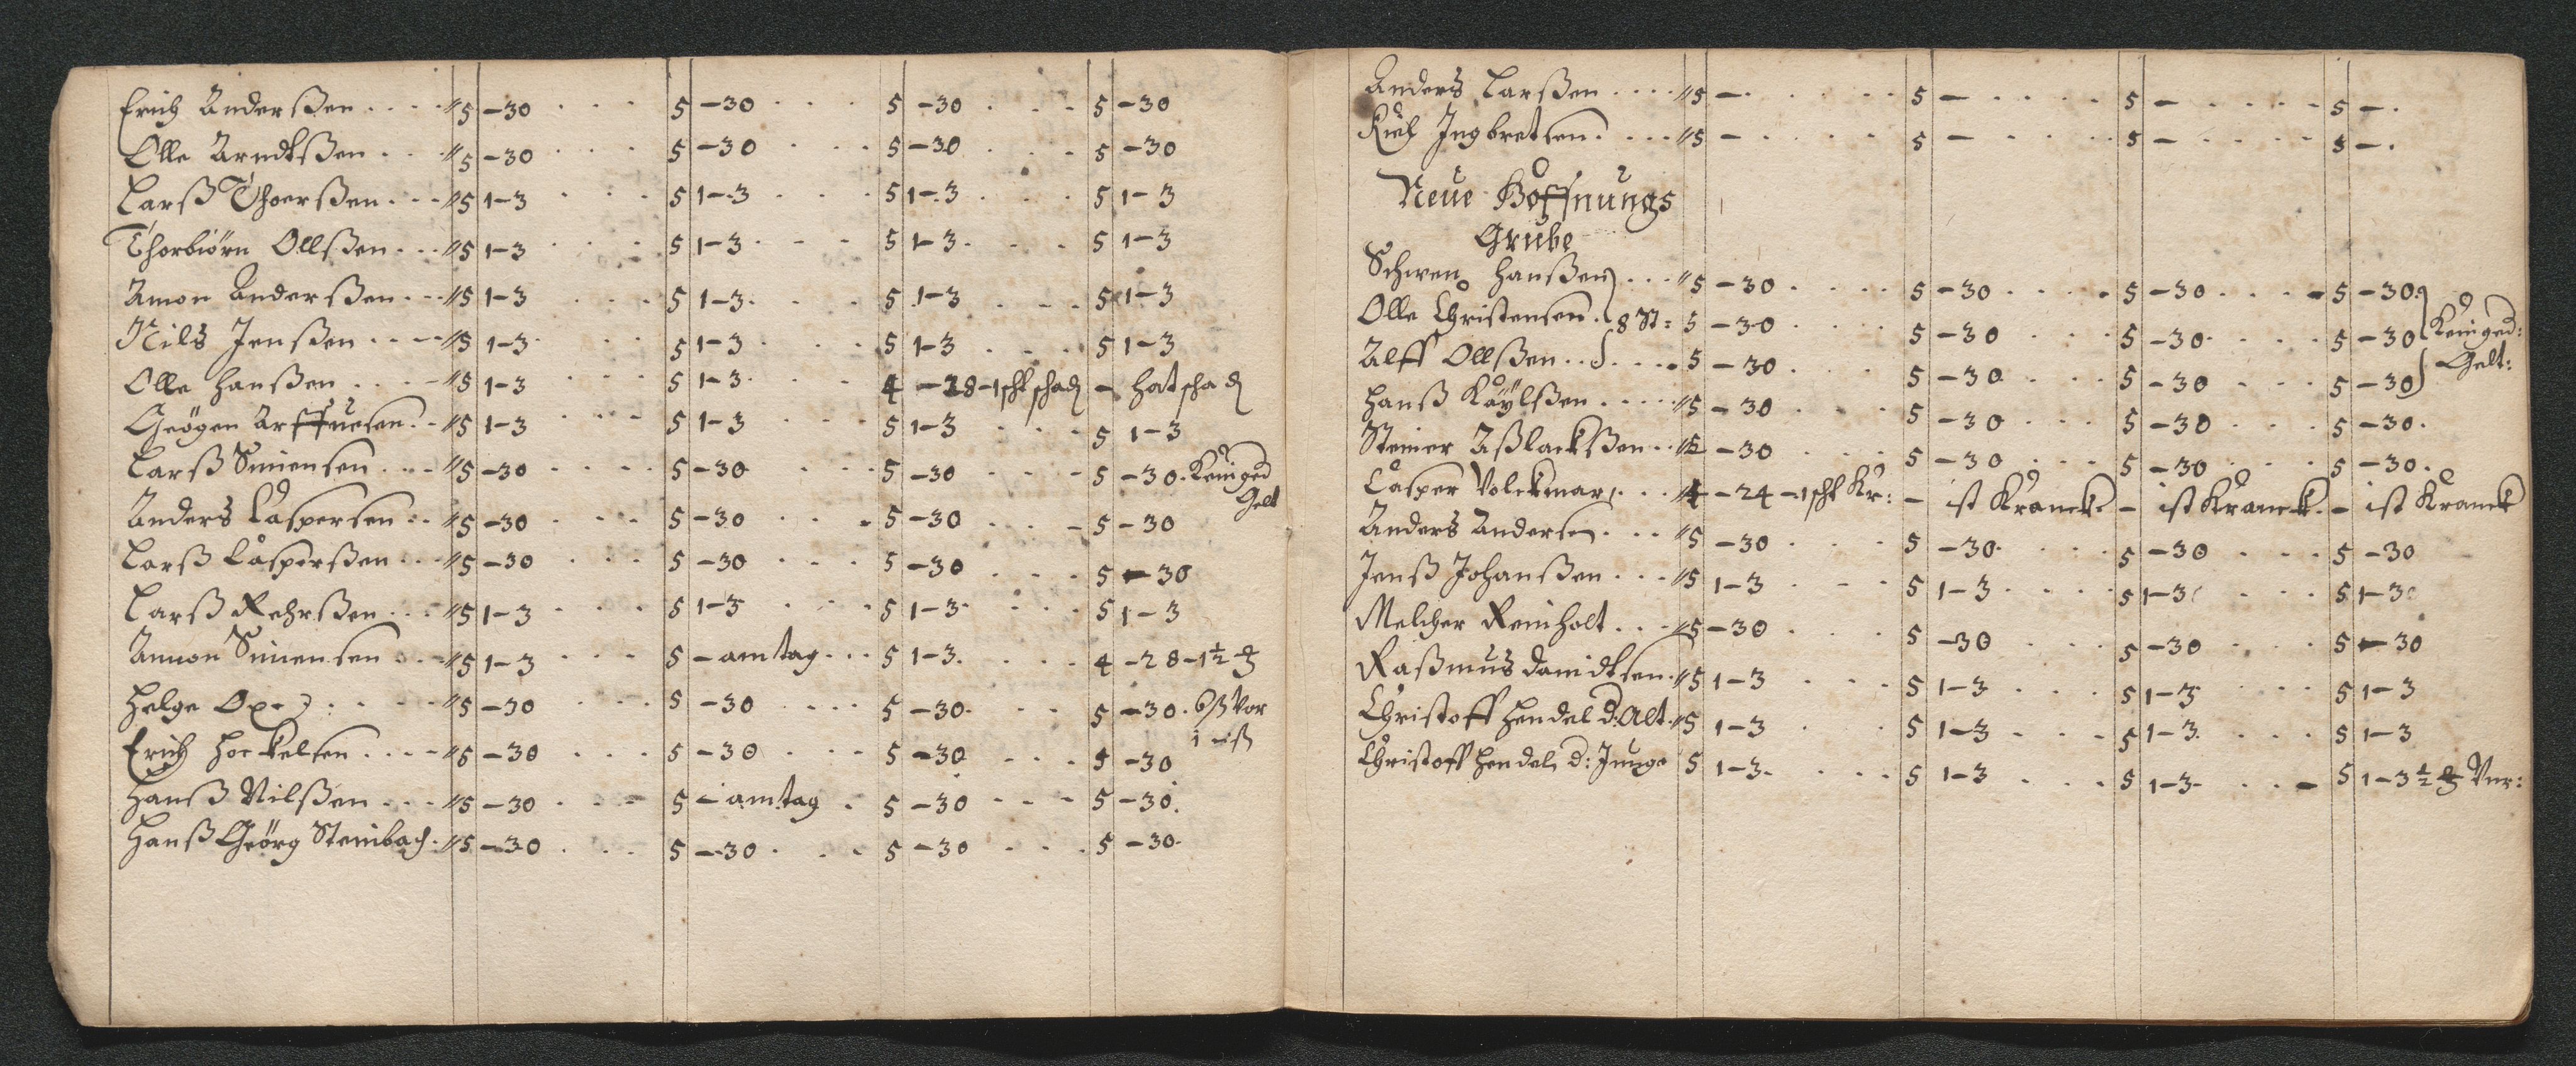 Erich Anderßen . . . . " 5 – 30 . . . 5 – 30 . . . 5 – 30 . . . 5 – 30
Olle Arndtßen . . . " 5 – 30 . . . 5 – 30 . . . 5 – 30 . . . 5 – 30
Larß Thoerßen . . . " 5 1 – 3 . . . 5 1 – 3 . . . 5 1 – 3 . . . 5 1 – 3
Thorbiörn Ollßen . . . " 5 1 – 3 . . . 5 1 – 3 . . . 5 1 – 3 . . . 5 1 – 3
Amon Anderßen . . . " 5 1 – 3 . . . 5 1 – 3 . . . 5 1 – 3 . . . 5 1 – 3
Nils Jenßen . . . . " 5 1 – 3 . . . 5 1 – 3 . . . 5 1 – 3 . . . 5 1 – 3
Olle Hanßen . . . . " 5 1 – 3 . . . 5 1 – 3 . . . 4 – 28 – 1 schf schad – hat schad
Geögen . . " 5 1 – 3 . . . 5 1 – 3 . . . 5 1 – 3 . . . 5 1 – 3
Larß Simensen . . . " 5 – 30 . . . 5 – 30 . . . 5 – 30 . . . 5 – 30 . Kein ged
Gelt
Anders Caspersen . . " 5 – 30 . . . 5 – 30 . . . 5 – 30 . . . 5 – 30
Larß Casperßen . . . " 5 – 30 . . . 5 – 30 . . . 5 – 30 . . . 5 – 30
Larß Rehrßen . . . " 5 1 – 3 . . . 5 1 – 3 . . . 5 1 – 3 . . . 5 1 – 3
Ammon Simensen . . . " 5 1 – 3 . . . 5 – am tag . . . 5 1 – 3 . . . 4 – 28 – 1½
Helge . . . . " 5 – 30 . . . 5 – 30 . . . 5 – 30 . . . 5 – 30 . 6 ß Vor
Erich Horkelsen . . . . " 5 – 30 . . . 5 – 30 . . . 5 – 30 . . . 5 – 30
Hanß Nilßen . . . " 5 – 30 . . . 5 – am tag . 5 – 30 . . . 5 – 30 .
Hanß Geörg Steinbach . " 5 – 30 . . . 5 – 30 . . . 5 – 30 . . . 5 – 30 .
Anders Larßen . . . . " 5 – . . . . 5 – . . . . 5 – . . . . 5 – .
Kiel Ingbretsen . . . . " 5 – . . . . 5 – . . . . 5 – . . . . 5 – .
Neue Hoffnungs
Grube
Schwen Hanßen . . . " 5 – 30 . . . . 5 – 30 . . . . 5 – 30 . . . . 5 – 30 .
Olle Christensen . 8 St: 5 – 30 . . . 5 – 30 . . . 5 – 30 . . . 5 – 30 Kein ged:
Gelt:
Alff Ollßen . . . . . . 5 – 30 . . . 5 – 30 . . . 5 – 30 . . . 5 – 30
Hanß Käylßen . . . . " 5 – 30 . . . 5 – 30 . . . 5 – 30 . . . 5 – 30 .
Steiner Aßlackßen . . " 5 – 30 . . . 5 – 30 . . . 5 – 30 . . . 5 – 30 .
Casper Volckmar . . . " 4 – 24 – 1 schf Kr: – ist Kranck – ist Kranck . – ist Kranck
Anders Andersen . . . " 5 – 30 . . . 5 – 30 . . . 5 – 30 . . . 5 – 30
Jenß Johanßen . . . " 5 1 – 3 . . . 5 1 – 3 . . . . 5 1 – 3 . . . 5 1 – 3
Melcher Reinholt . . . " 5 – 30 . . . 5 – 30 . . . 5 – 30 . . . 5 – 30
Raßmus Davidtsen . " 5 1 – 3 . . . 5 1 – 3 . . . 5 1 – 3 . . . 5 1 – 3
Christoff Hendel d: Alt . " 5 1 – 3 . . . 5 1 – 3 . . . 5 1 – 3 . . . 5 1 – 3
Christoff Hendel d: Junge 5 1 – 3 . . . 5 1 – 3 . . . 5 1 – 3 . . . – 5 1 – 3 ½